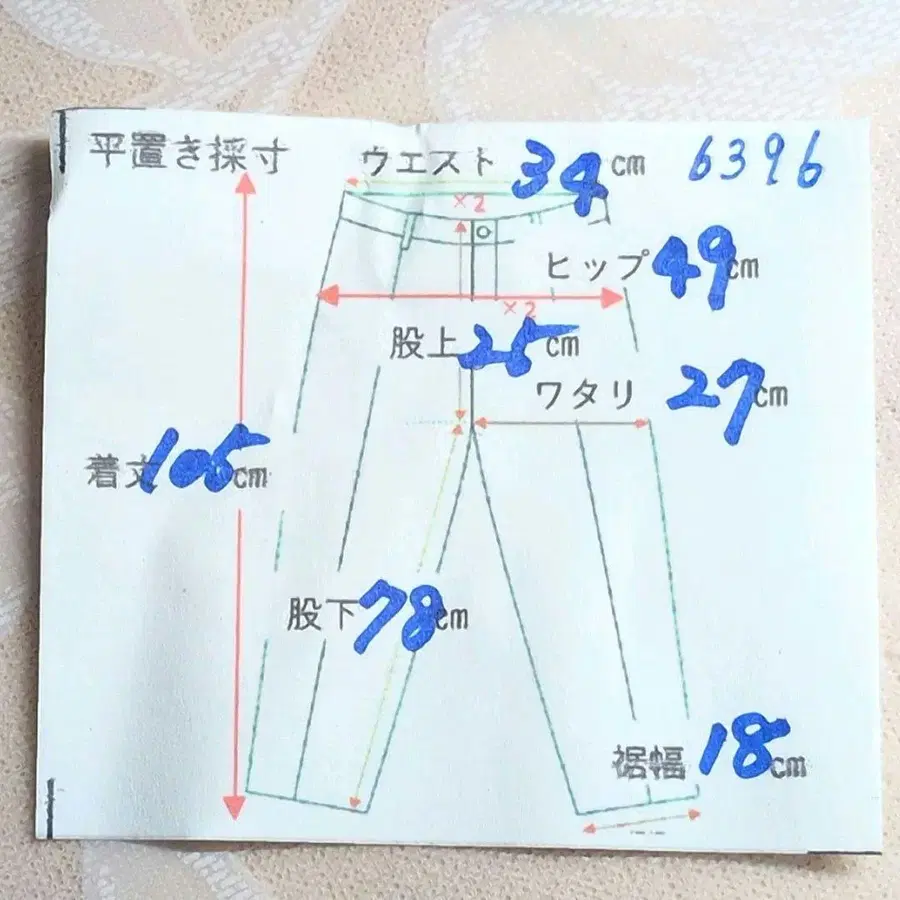 平置き採寸
ウエスト 34 cm 6396
×2
ヒップ 49 cm
×2
股上 25 cm
ワタリ 27 cm
着丈 105 cm
股下 78 cm
裾幅 18 cm